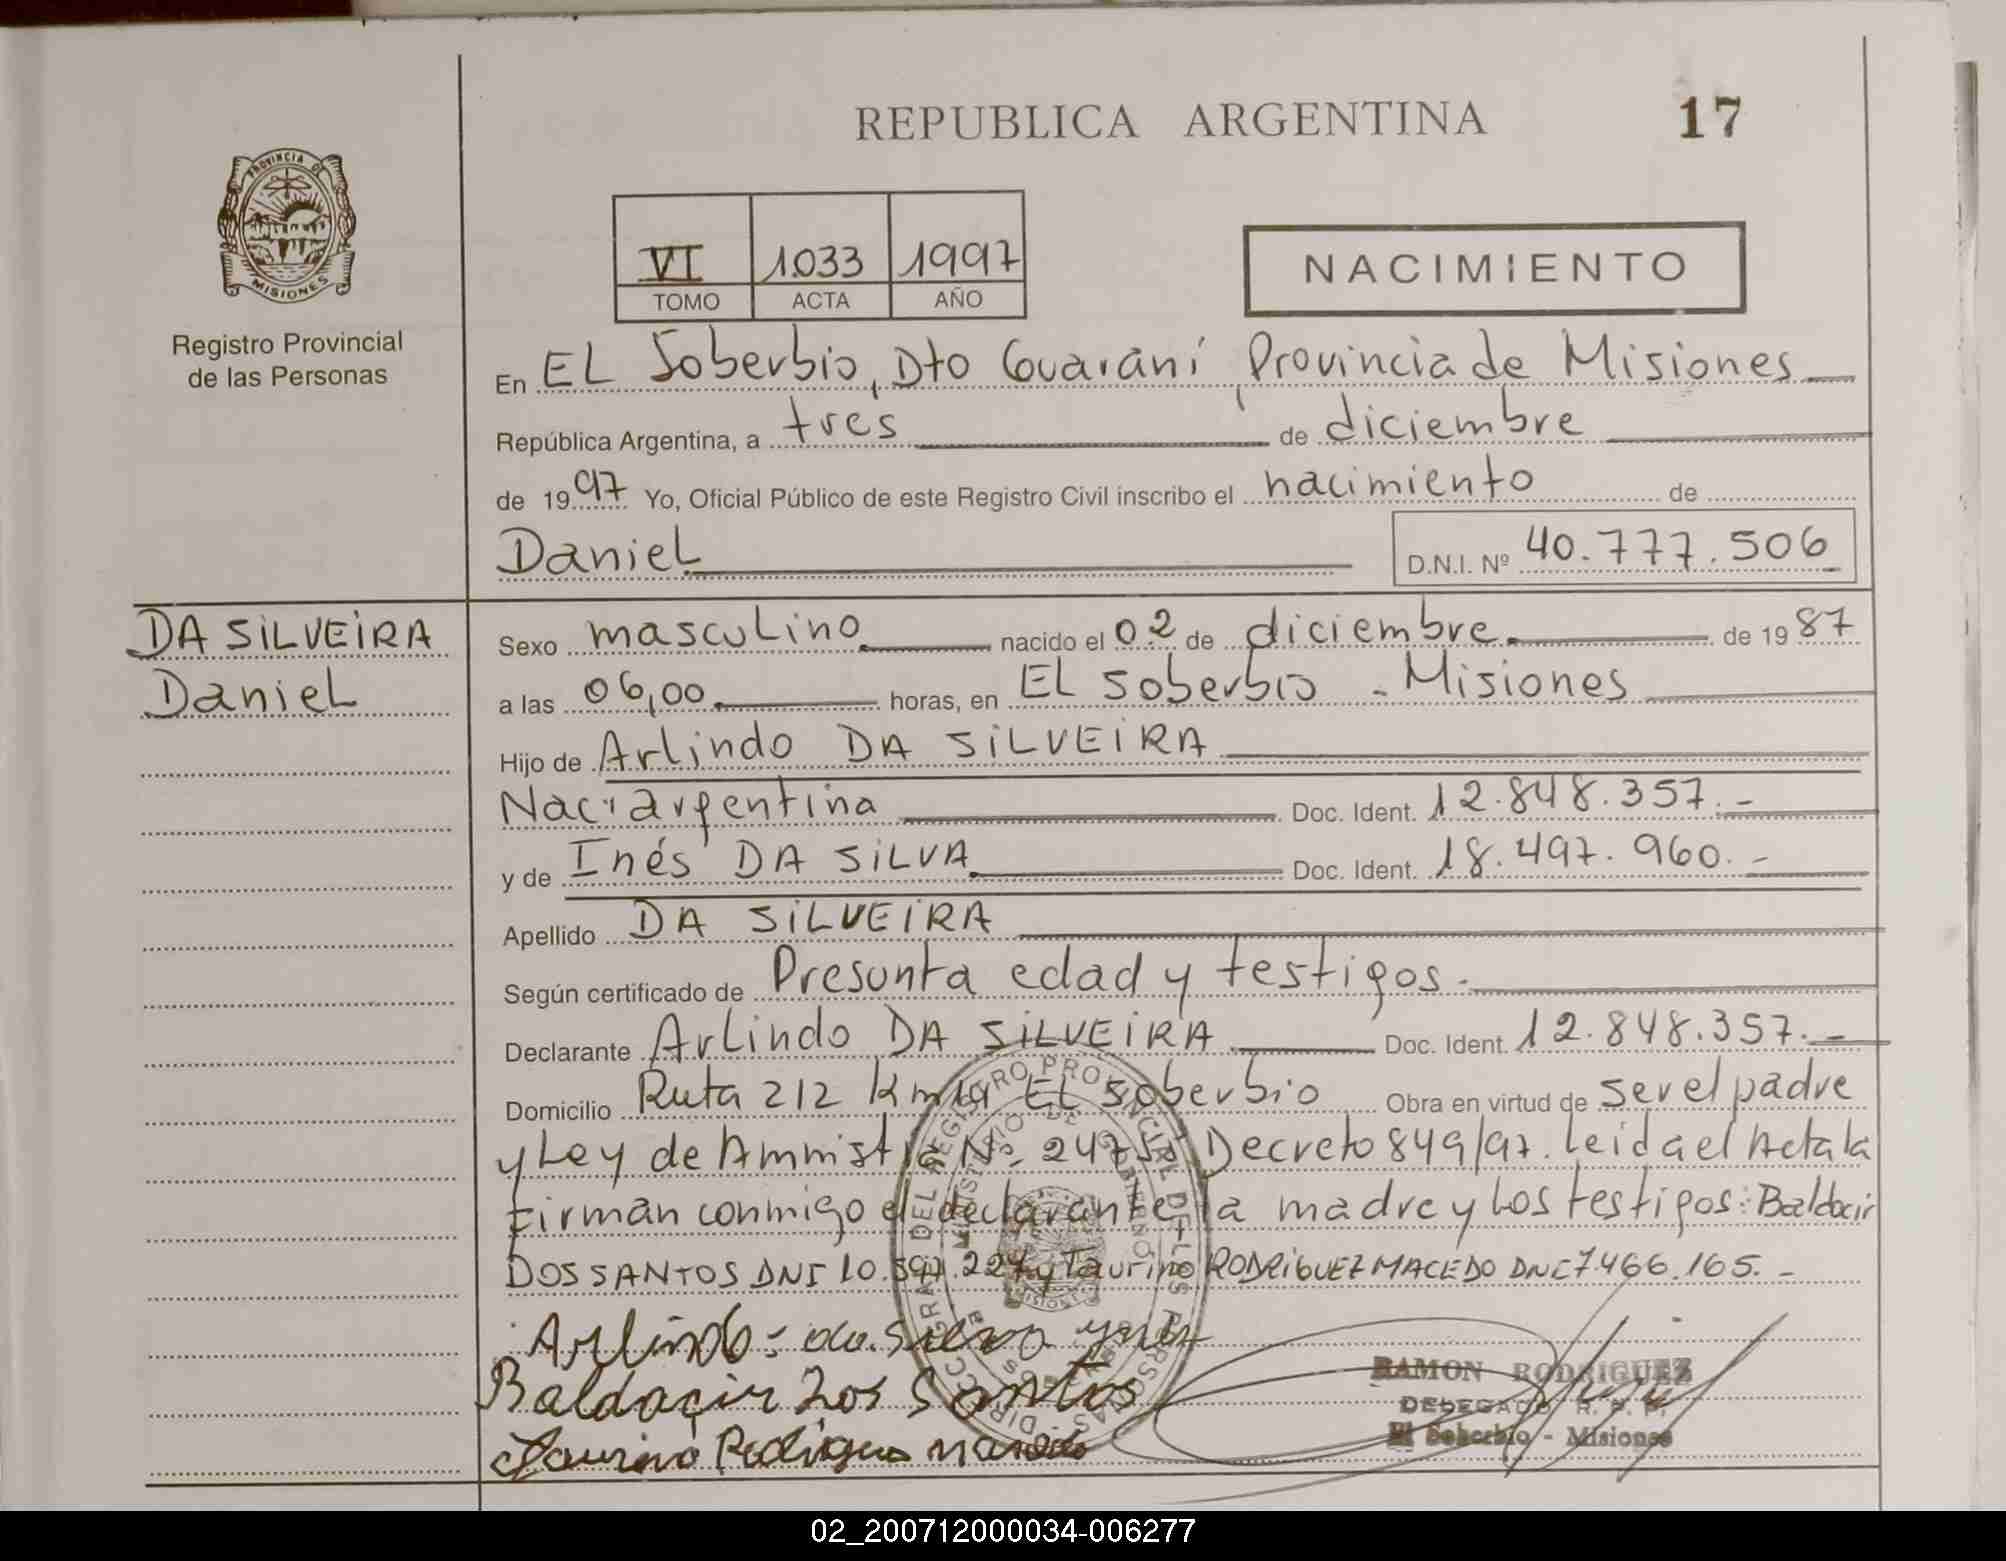 REPUBLICA ARGENTINA
17
PROVINCIA DE
MISIONES
Registro Provincial
de las Personas
VI 1033 1997
TOMO ACTA AÑO
NACIMIENTO
En EL Soberbio, Dto Guaraní, Provincia de Misiones
República Argentina, a tres de diciembre
de 1997 Yo, Oficial Público de este Registro Civil inscribo el nacimiento de
Daniel D.N.I. Nº 40.777.506
DA SiLVEiRA
Daniel
Sexo masculino nacido el 02 de diciembre de 1987
a las 06,00 horas, en EL Soberbio - Misiones
Hijo de Arlindo DA SiLVEiRA
Nac: argentina Doc. Ident. 12.848.357.-
y de Inés DA SiLVA Doc. Ident. 18.497.960.-
Apellido DA SiLVEiRA
Según certificado de Presunta edad y testigos.
Declarante Arlindo DA SiLVEiRA Doc. Ident. 12.848.357.-
Domicilio Ruta 212 Km EL Soberbio Obra en virtud de ser el padre
y Ley de Amnistía Nº Decreto 849/97. Leida el Acta la
firman conmigo el declarante la madre y los testigos: Baldacir
DOS SANTOS DNI 10.597.227 y Taurino RODRiGUEZ MACEDO DNI 7.466.165.-
Arlindo
Baldaçir dos Santos
Taurino Rodrigues
RAMON RODRIGUEZ
DELEGADO R. P. P.
El Soberbio - Misiones
02_200712000034-006277